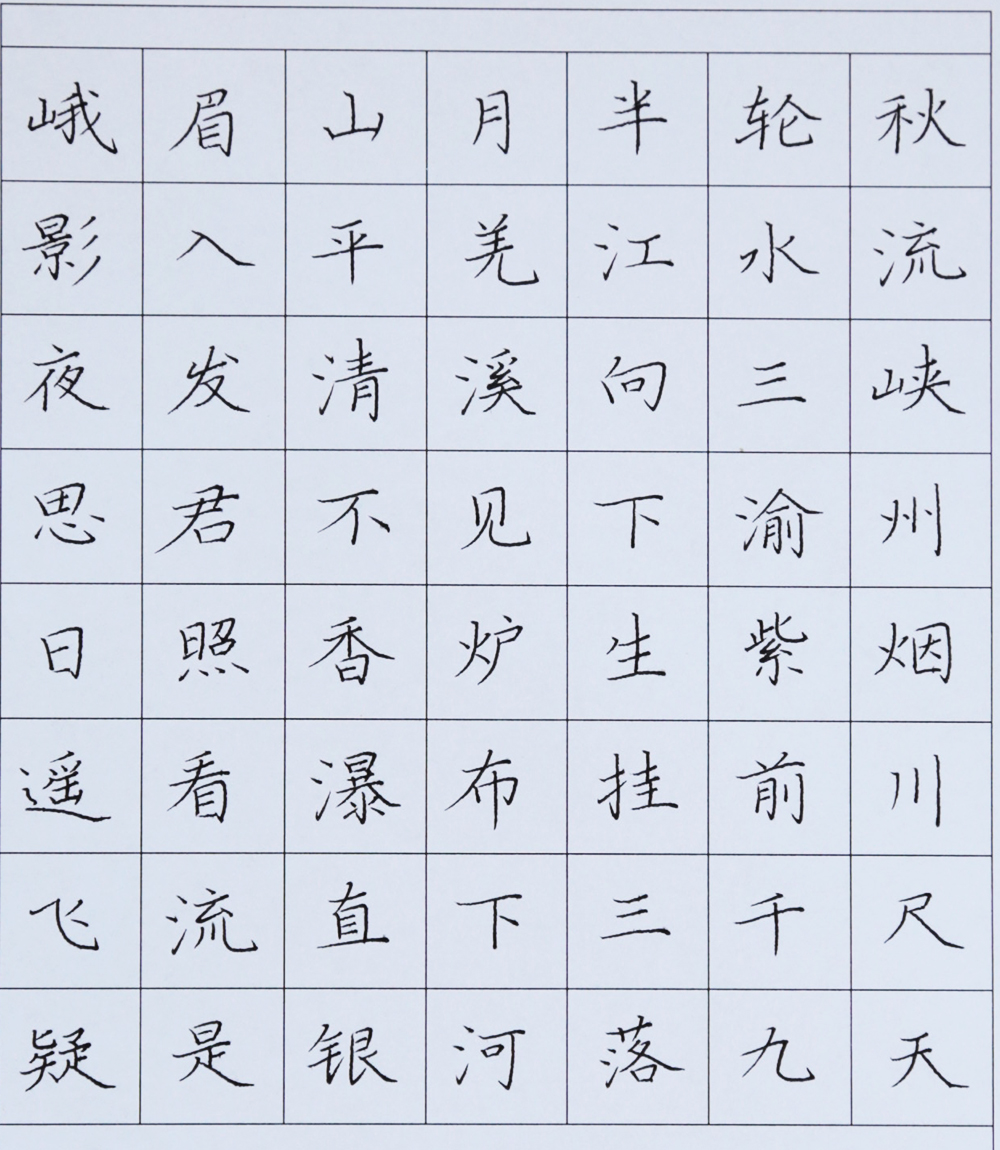 峨眉山月半轮秋
影入平羌江水流
夜发清溪向三峡
思君不见下渝州
日照香炉生紫烟
遥看瀑布挂前川
飞流直下三千尺
疑是银河落九天